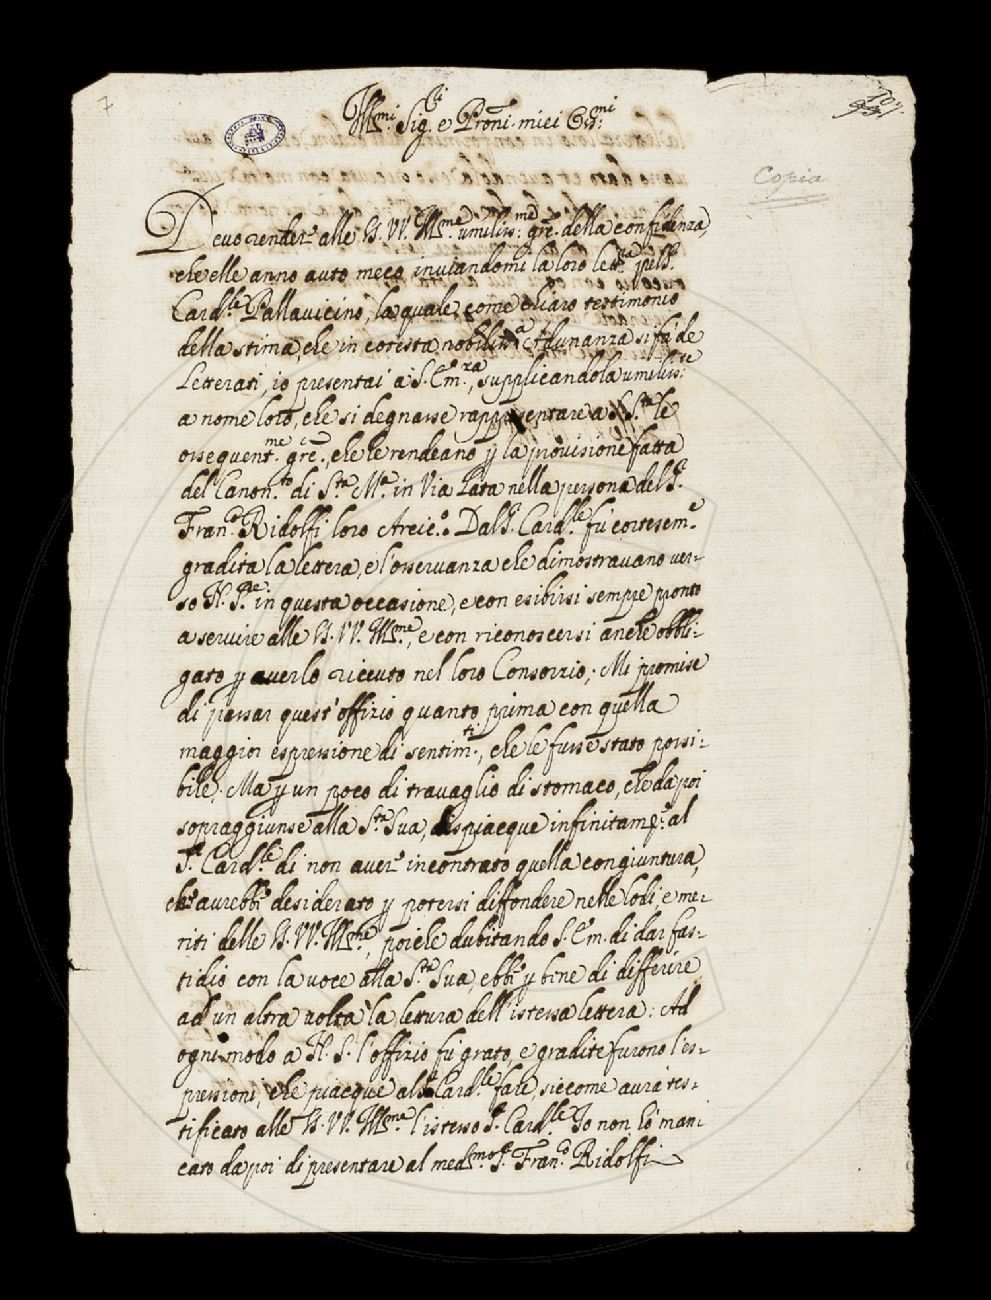 7
107
93
Copia
Ill.mi Sig.ri e Pron̄i miei Oss.mi
Devo render alle SS. VV. Ill.me umiliss.me gr̄e della confidenza,
che elle anno auto meco inviandomi la loro lett.ra p il S.r
Card.le Pallavicino, la quale, come chiaro testimonio
della stima, che in cotesta nobiliss.a Adunanza si fà de
Letterati, io presentai à S. Em.za, supplicandola umiliss.te
a nome loro, che si degnasse rappresentare a S. S.tà le
ossequent.me gr̄e, che le rendeano p la provisione fatta
del Canon.to di S.ta M.a in Via Lata nella persona del S.r
Fran.co Ridolfi loro Arcic.o Dal S.r Card.le fù cortesem.e
gradita la lettera, e l'osservanza che dimostravano ver-
so N. S.re in questa occasione, e con esibirsi sempre pronto
a servire alle SS. VV. Ill.me, e con riconoscersi anche obbli-
gato p averlo ricevuto nel loro Consorzio; Mi promise
di passar quest'offizio quanto prima con quella
maggior espressione di sentim.ti, che le fusse stato possi-
bile; Ma p un poco di travaglio di stomaco, che da poi
sopraggiunse alla S.tà Sua, dispiacque infinitam.e al
S.r Card.le di non aver incontrato quella congiuntura,
che aurebbe desiderato p potersi diffondere nelle lodi, e me-
riti delle SS. VV. Ill.me, poiche dubitando S. Em. di dar fas-
tidio con la voce alla S.tà Sua, ebbe p bene di differire
ad un altra volta la lettura dell'istessa lettera: Ad
ogni modo a N. S. l'offizio fù grato, e gradite furono l'es-
pressioni, che piacque al S.r Card.le fare, siccome aurà tes-
tificato alle SS. VV. Ill.me l'istesso S.r Card.le Io non hò man-
cato da poi di presentare al med.mo S.r Fran.co Ridolfi